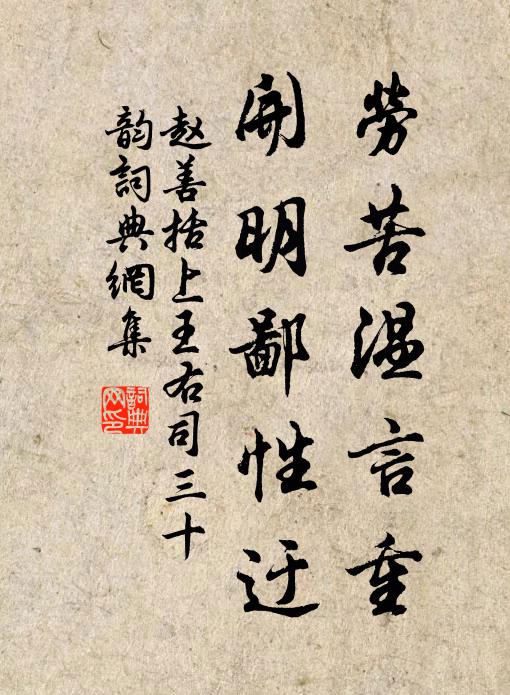 勞苦温言重
開明鄙性迂
赵善括上王右司三十
韵詞典網集
詞典
网印